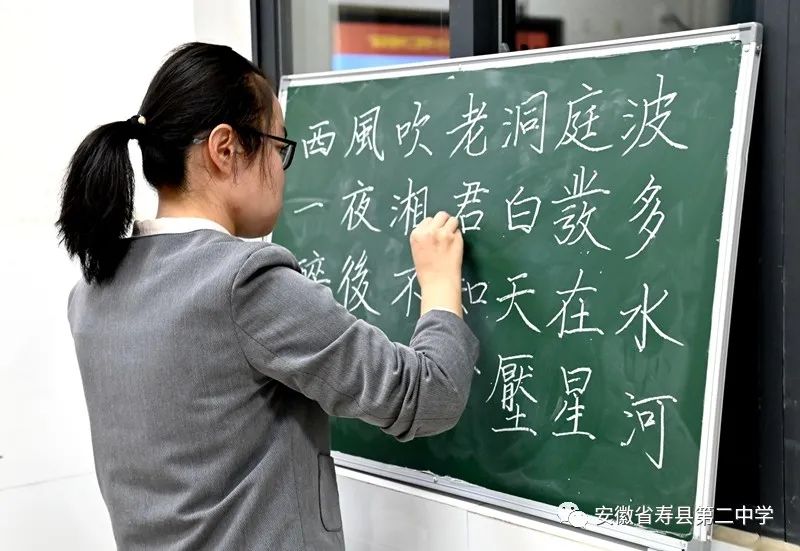 西風吹老洞庭波
一夜湘君白發多
醉後不知天在水
壓星河
安徽省寿县第二中学